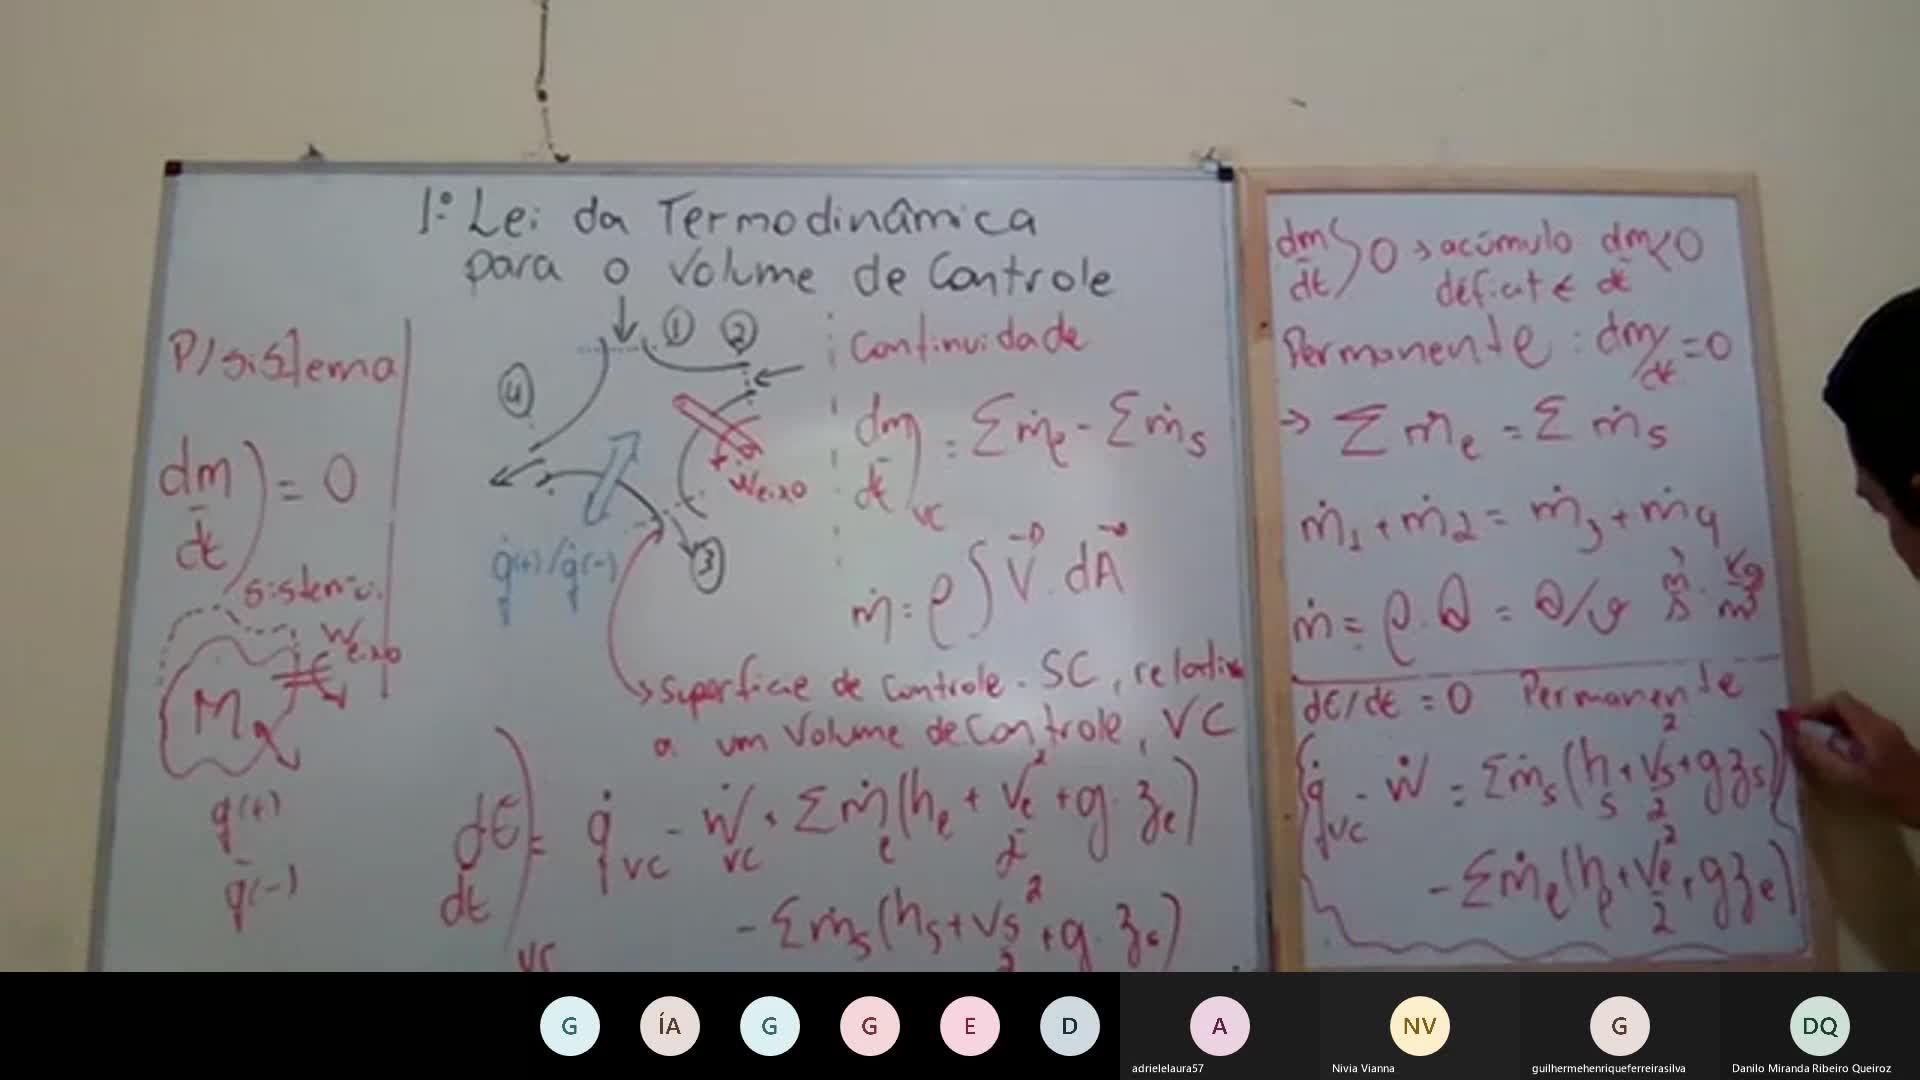 1ª Lei da Termodinâmica
para o Volume de Controle
P/ sistema
dm/dt) = 0
sistema
We>0
M
q(+)
q(-)
1
2
3
4
We>0
q̇(+)/q̇(-)
Continuidade
dm/dt)vc = Σṁe - Σṁs
ṁ = ρ∫V⃗.dA⃗
→ Superfície de Controle - SC, relativa
a um Volume de Controle, VC
dE/dt)vc = q̇vc - Ẇvc + Σṁe(he + Ve²/2 + g.ze)
- Σṁs(hs + Vs²/2 + g.zs)
dm/dt) > 0 → acúmulo dm/dt < 0
déficit ←
Permanente : dm/dt = 0
→ Σṁe = Σṁs
ṁ1 + ṁ2 = ṁ3 + ṁ4
ṁ = ρ.Q = Q/v m³/s . kg/m³
dE/dt = 0 Permanente
q̇vc - Ẇ = Σṁs(hs + Vs²/2 + gzs)
- Σṁe(he + Ve²/2 + gze)
G
ÍA
G
G
E
D
A
NV
G
DQ
adrielelaura57
Nivia Vianna
guilhermehenriqueferreirasilva
Danilo Miranda Ribeiro Queiroz